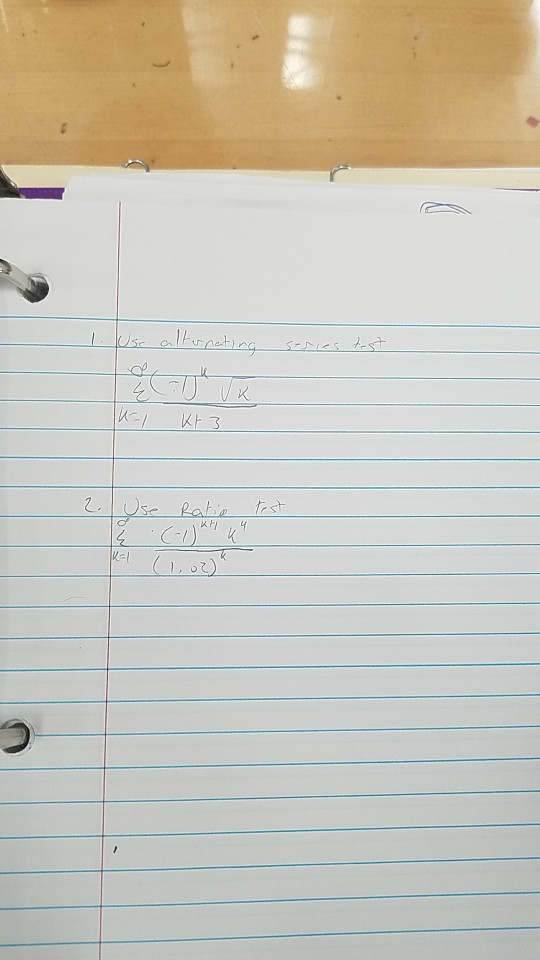 1. Use alternating series test
∞
Σ (-1)^k √k
k=1 k+3
2. Use Ratio test
∞
Σ (-1)^k+1 k^4
k=1 (1.02)^k